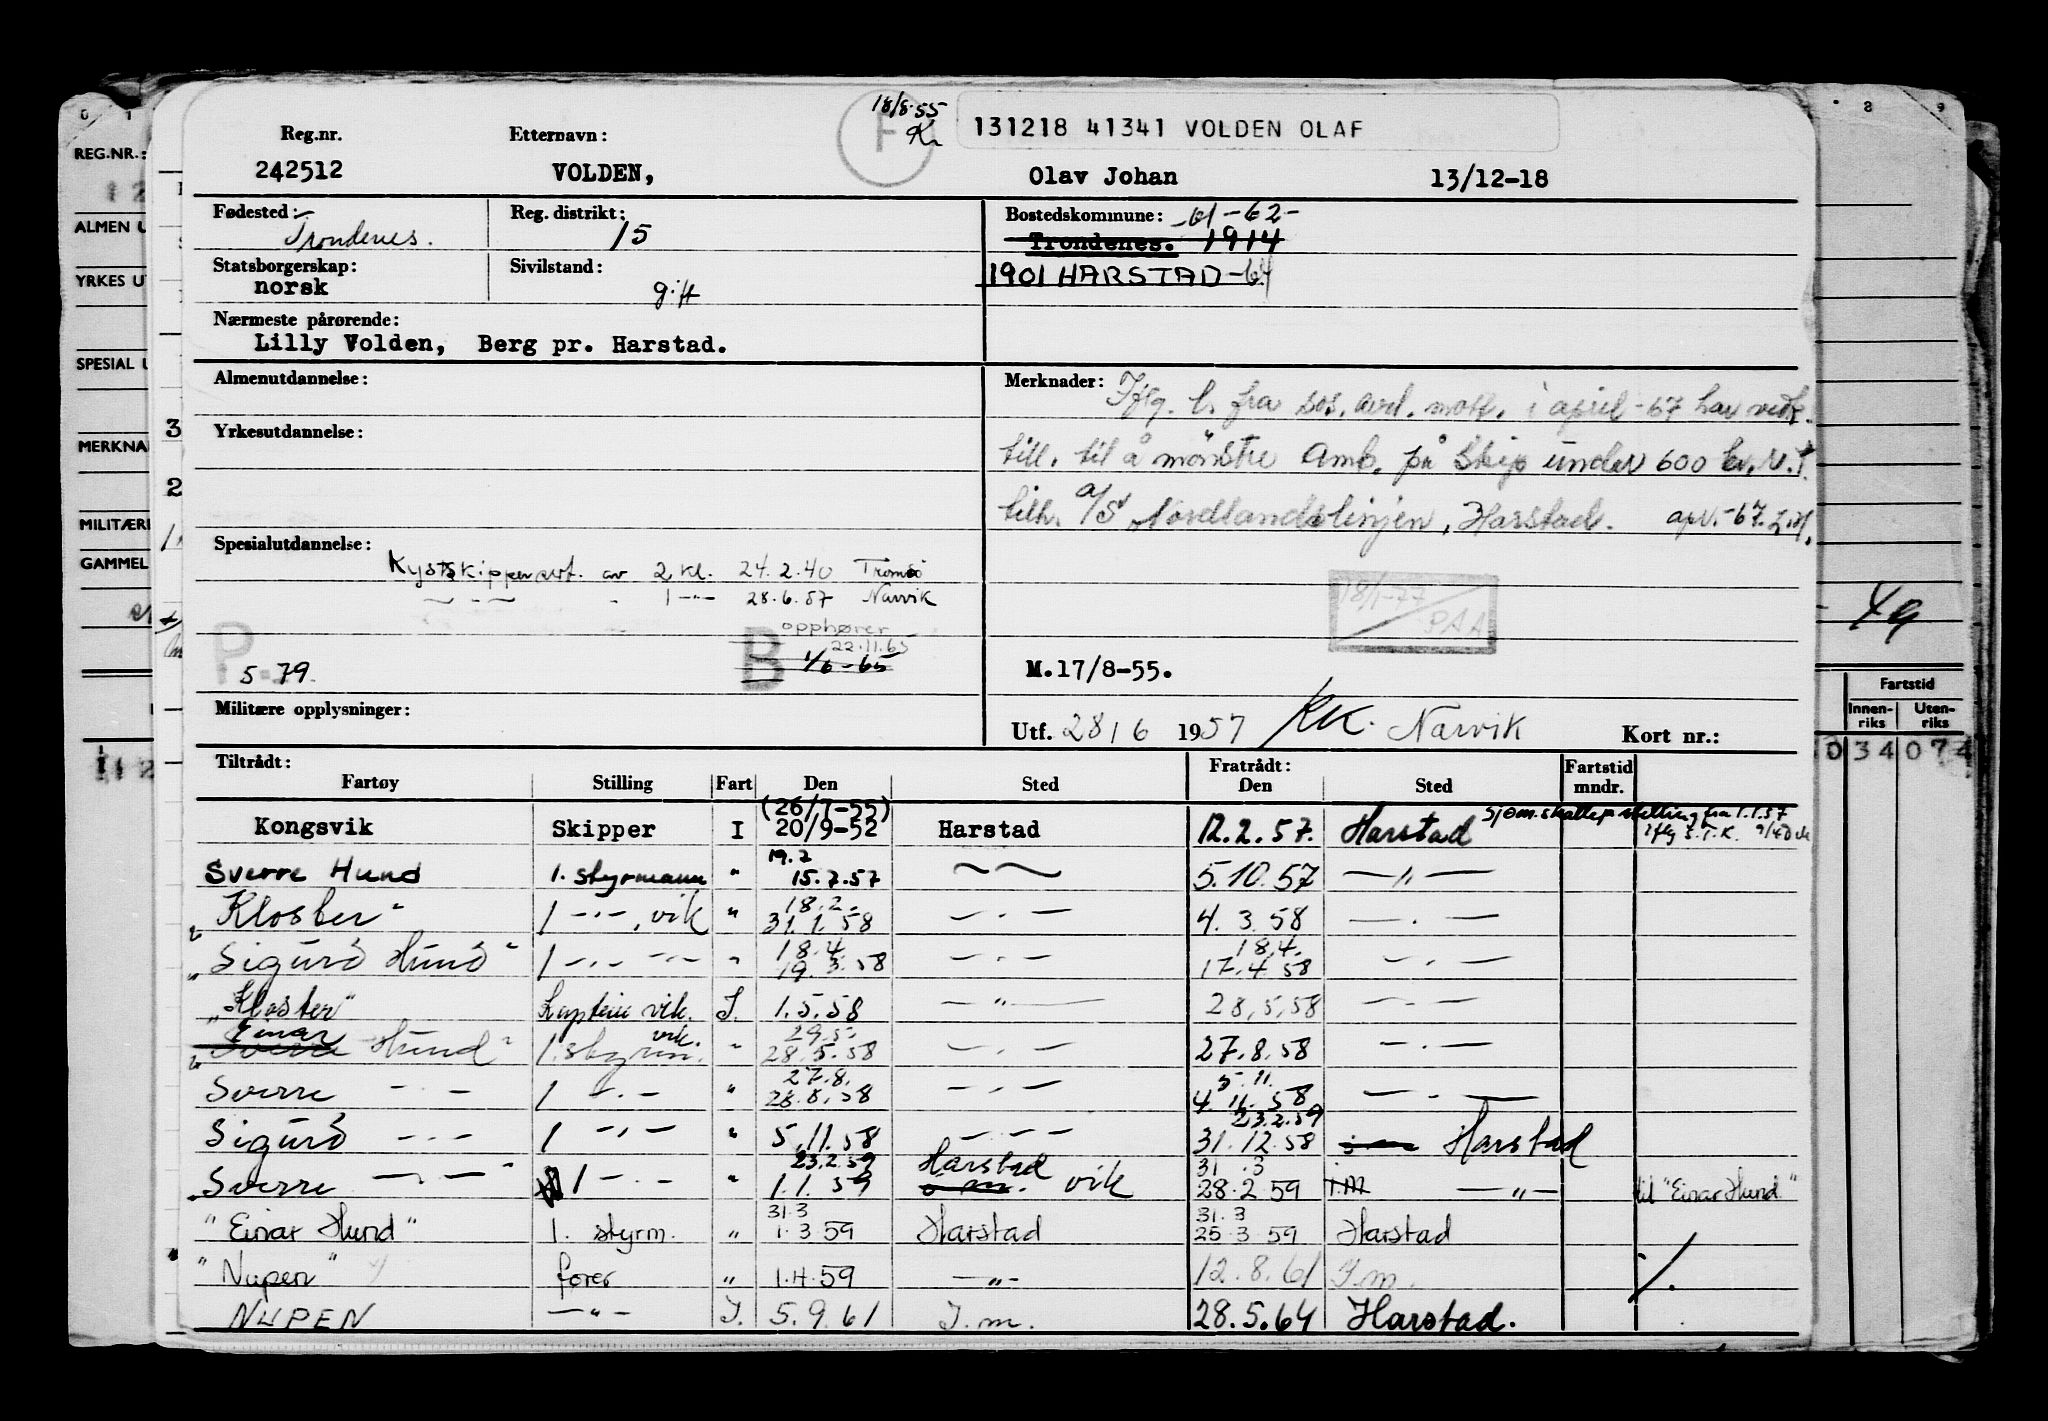 18/8-55
131218 41341 VOLDEN OLAF
Reg.nr. Etternavn: F Kr
242512 VOLDEN, Olav Johan 13/12-18
Fødested: Reg. distrikt: Bostedskommune: -61-62-
Trondenes. 15 Trondenes. 1914
Statsborgerskap: Sivilstand: 1901 HARSTAD-64
norsk gift
Nærmeste pårørende:
Lilly Volden, Berg pr. Harstad.
Almenutdannelse: Merknader: Iflg. b. fra sos. avd. mott. i april -67 har vedk.
Yrkesutdannelse: till. til å mønstre amb. på skip under 600 br.r.t
tilh. A/S Nordlandslinjen, Harstad. apr.-67.
Spesialutdannelse:
Kystskippersert. av 2 kl. 24.2.40 Tromsø
1 -"- 28.6.57 Narvik
18/1-77
PAA
opphører
22.11.65
P. B 1/6-65
5-79. M.17/8-55.
Militære opplysninger: Utf. 28/6 1957 KK. Narvik Kort nr.:
Tiltrådt: Fratrådt: Fartstid
Fartøy Stilling Fart Den Sted Den Sted mndr.
(26/7-55)
Kongsvik Skipper I 20/9-52 Harstad 12.2.57. Harstad Sjøm.skattepl. stilling fra 1.1.57
iflg S.T.K.
19.7
Sverre Hund 1. styrmann " 15.7.57 5.10.57 -"-
18.2.
"Kloster" 1 -"-, vik " 31.1.58 -"- 4.3.58 -"-
18.4. 18.4.
"Sigurd Hund" 1 -"- -"- " 19.3.58 -"- 17.4.58 -"-
"Kloster" Kaptein vik. I. 1.5.58 -"- 28.5.58 -"-
Einar vik. 29.5.
"Sverre Hund" 1. styrm. " 28.5.58 -"- 27.8.58 -"-
27.8. 5.11.
Sverre -"- 1 -"- " 28.8.58 -"- 4.11.58 -"-
23.2.59
Sigurd -"- 1 -"- " 5.11.58 -"- 31.12.58 Harstad
23.2.59 Harstad 31.3
"Sverre -"-" 1 -"- " 1.1.59 vik 28.2.59 I.M -"- til "Einar Hund"
31.3 31.3
"Einar Hund" 1. styrm. " 1.3.59 Harstad 25.3.59 Harstad
"Nupen" fører " 1.4.59 -"- 12.8.61 I.m.
NUPEN -"- I. 5.9.61 I.m. 28.5.64 Harstad.
REG.NR.:
ALMEN U
YRKES U
SPESIAL U
MERKNA
MILITÆRE
GAMMEL
Fartstid
Innen-riks Uten-riks
034 074